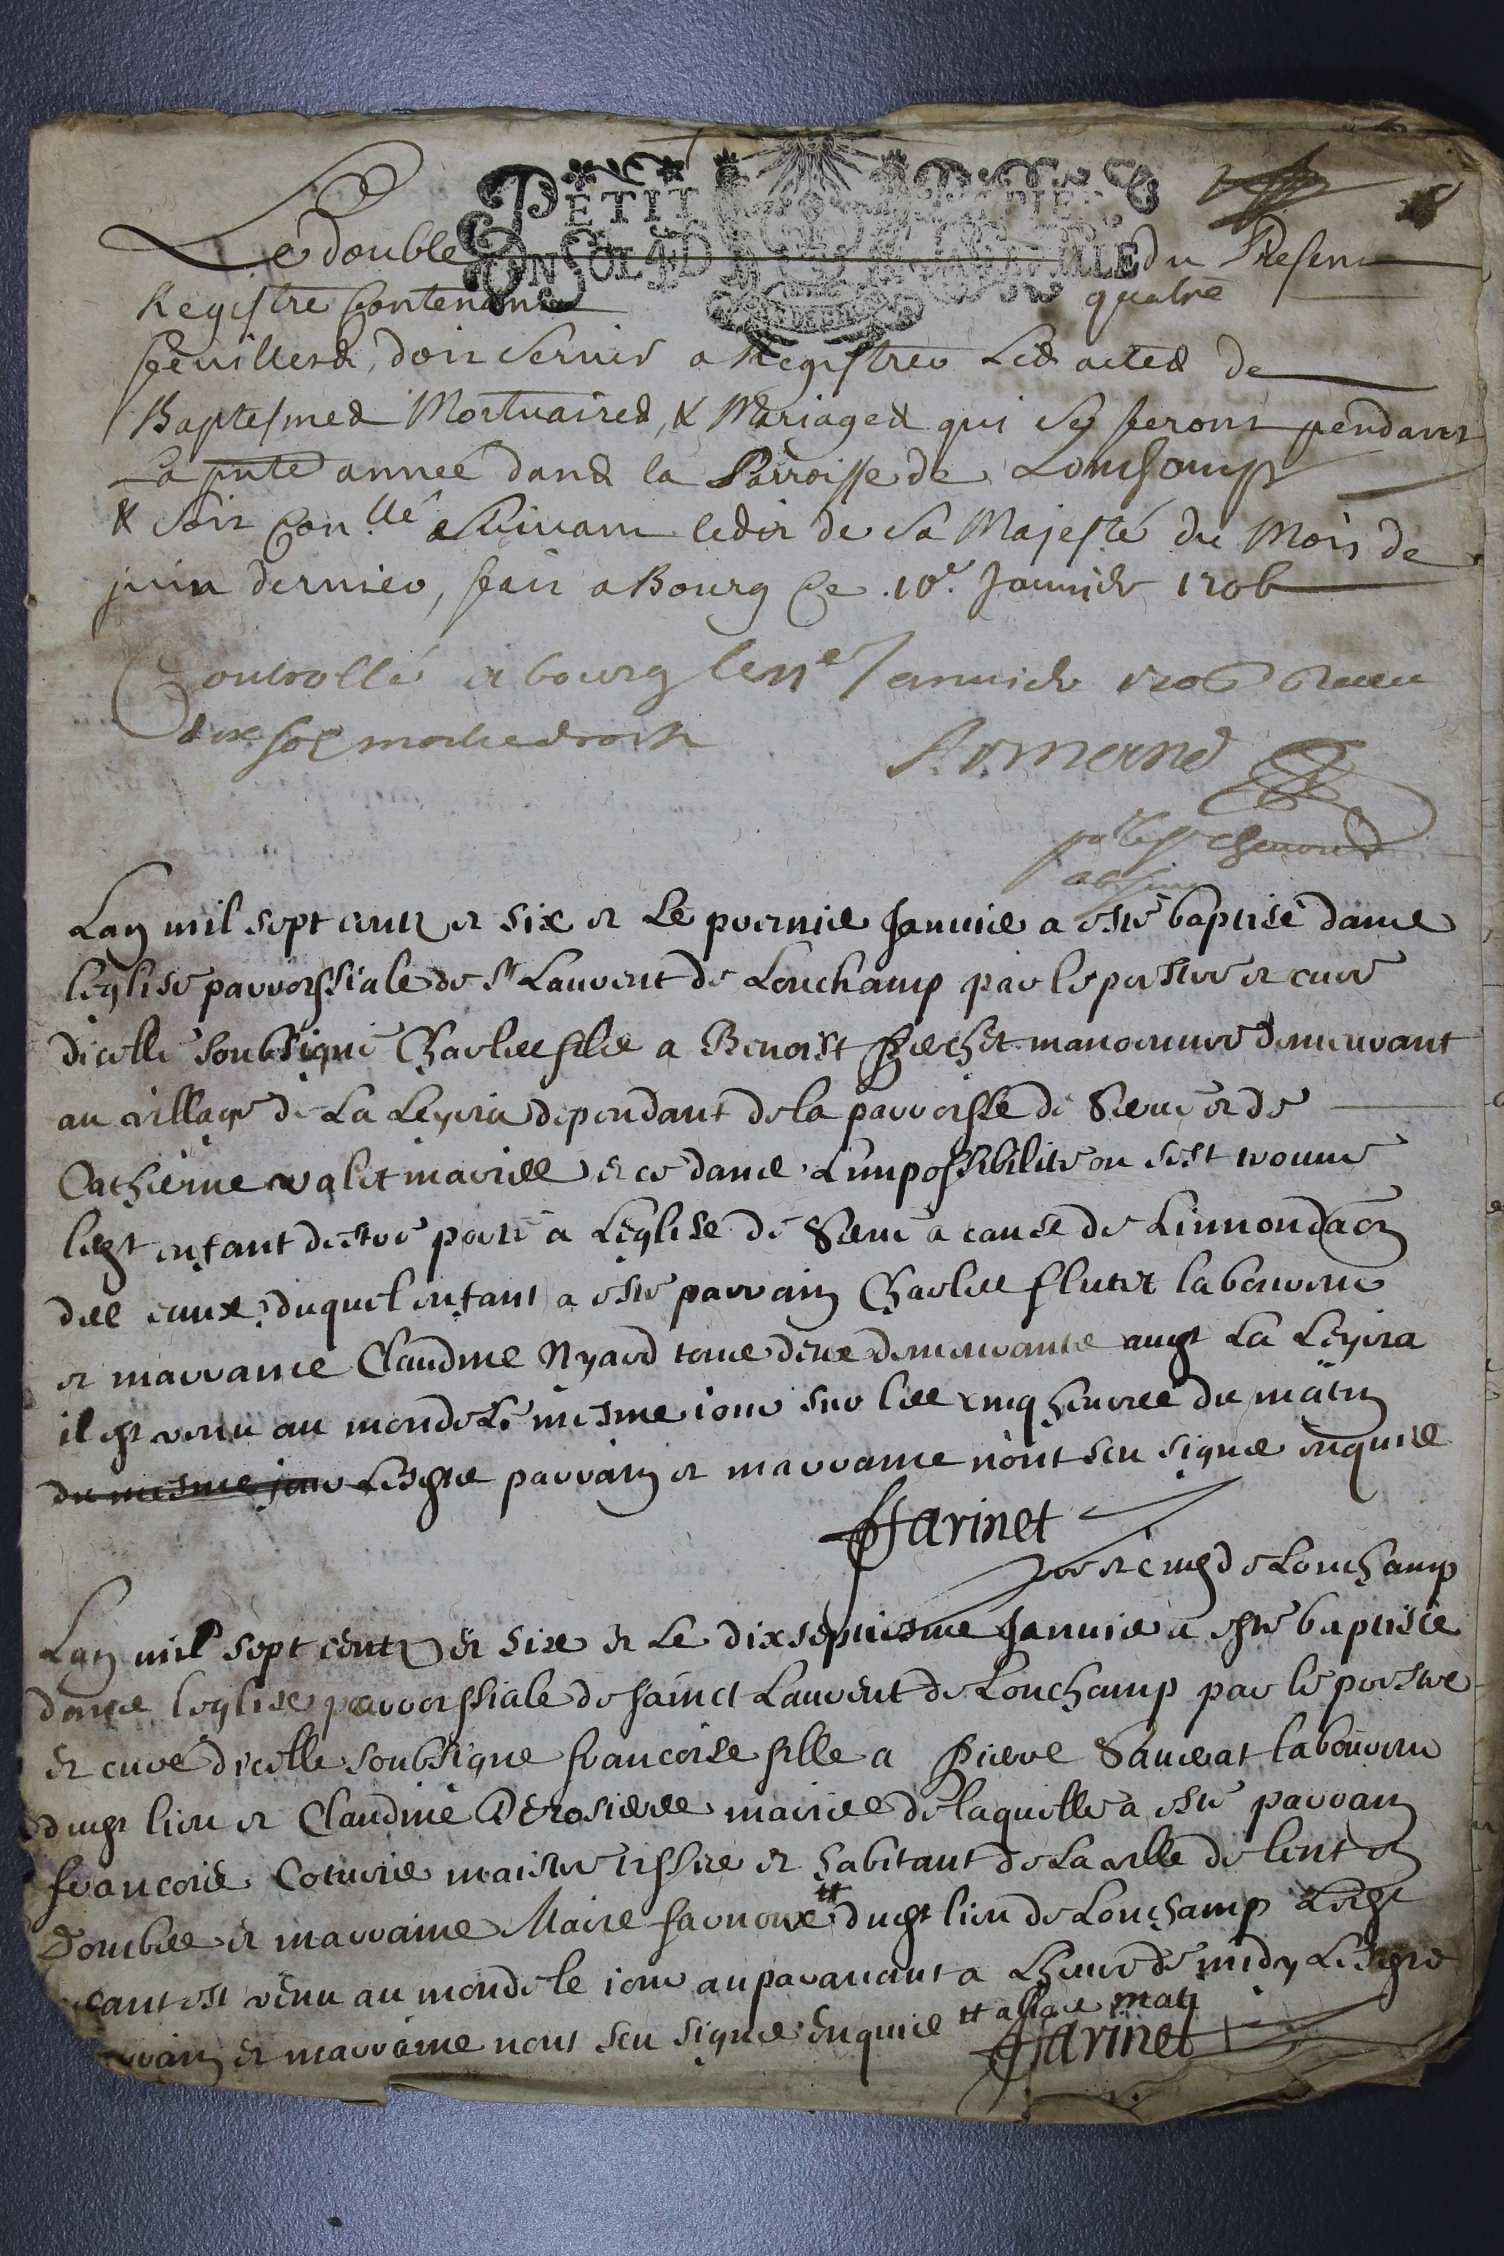 PETIT PAPIER
UN SOL 4 D LA FEUILLE
Le double du Present
Registre Contenant quatre
feuillets, doit servir a Registrer Les actes de
Baptesmes Mortuaires, & Mariages qui se feront pendant
La pnte année dans la Parroisse de Lonchamp
& soit Con.llé suivant ledit de Sa Majesté du Mois de
juin dernier, fait a Bourg Ce .10e. Janvier 1706
Controllé a bourg le 11e Janvier 1706 Receu
dix sols
Lan mil sept centz et six et Le premier Janvier a esté baptisé dans
leglise parroissiale de St Laurent de Lonchamp par le prestre et curé
dicelle soubsigné Charles fils a Benoist manoeuvre demeurant
au village de La Leyria dependant de la parroisse de Servé et de
Catherine valet mariés et ce dans Limpossibilité ou sest trouvé
ledt enfant destre porté a Leglise de Servé a cause de Linnondaon
des eaux, duquel enfant a esté parrain Charles flutet laboureur
et marraine Claudine Nyard tous deux demeurants audt La Leyria
il est venu au monde Le mesme jour sur les cinq heures du matin
du mesme jour Lesdts parrain et marraine n'ont sceu signer enquis
Farinet
pre et curé de Lonchamp
Lan mil sept centz et six et Le dixseptiesme Janvier a esté baptisée
dans leglise parroissiale de sainct Laurent de Lonchamp par le prestre
et curé dicelle soubsigné francoise fille a pierre laboureur
dudt lieu et Claudine Derosieres mariés de laquelle a esté parrain
francois maistre tissier et habitant de La ville de lent en
Dombes et marraine Marie dudt lieu de Lonchamp Ledt
enfant est venu au monde le jour auparavant a Lheure de midy Lesdts
parrain et marraine nont sceu signer enquis
Farinet